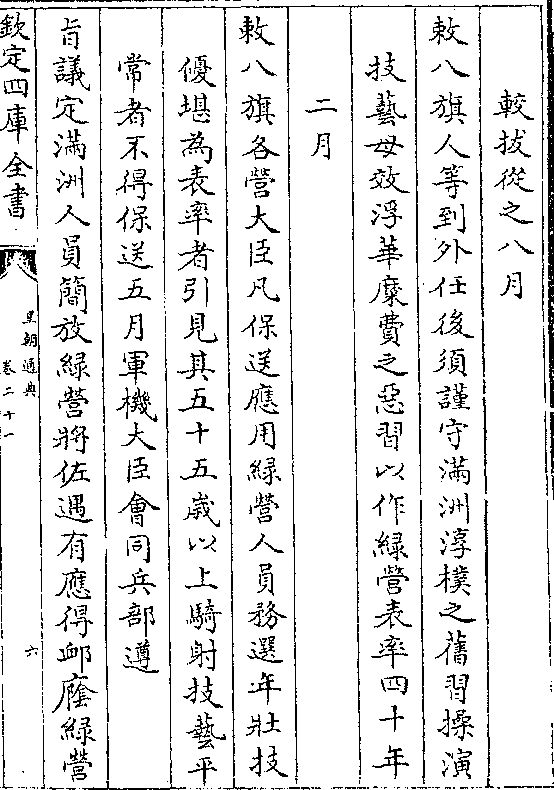 較拔從之八月
敕八旗人等到外任後須謹守滿洲淳樸之舊習操演
技藝毋效浮華糜費之惡習以作綠營表率四十年
二月
敕八旗各營大臣凡保送應用綠營人員務選年壯技
優堪為表率者引見其五十五歲以上騎射技藝平
常者不得保送五月軍機大臣會同兵部遵
旨議定滿洲人員簡放綠營將佐遇有應得衈廕綠營
欽定四庫全書
皇朝通典
卷二十一
六